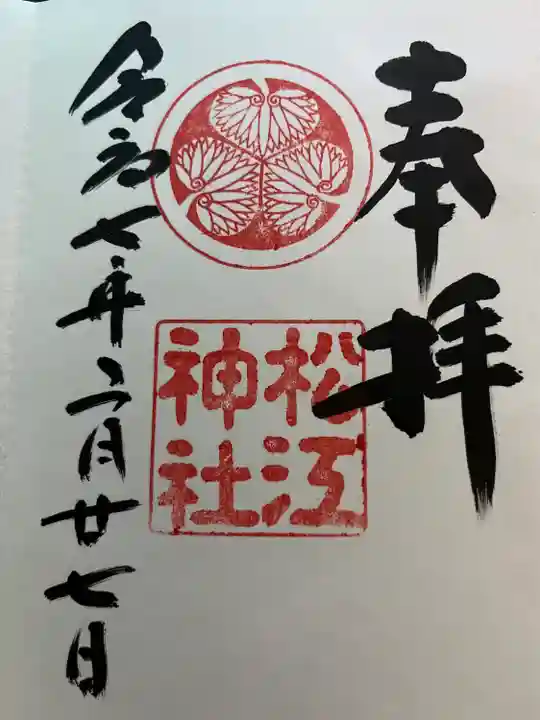 奉拝
松江
神社
令和七年二月廿七日